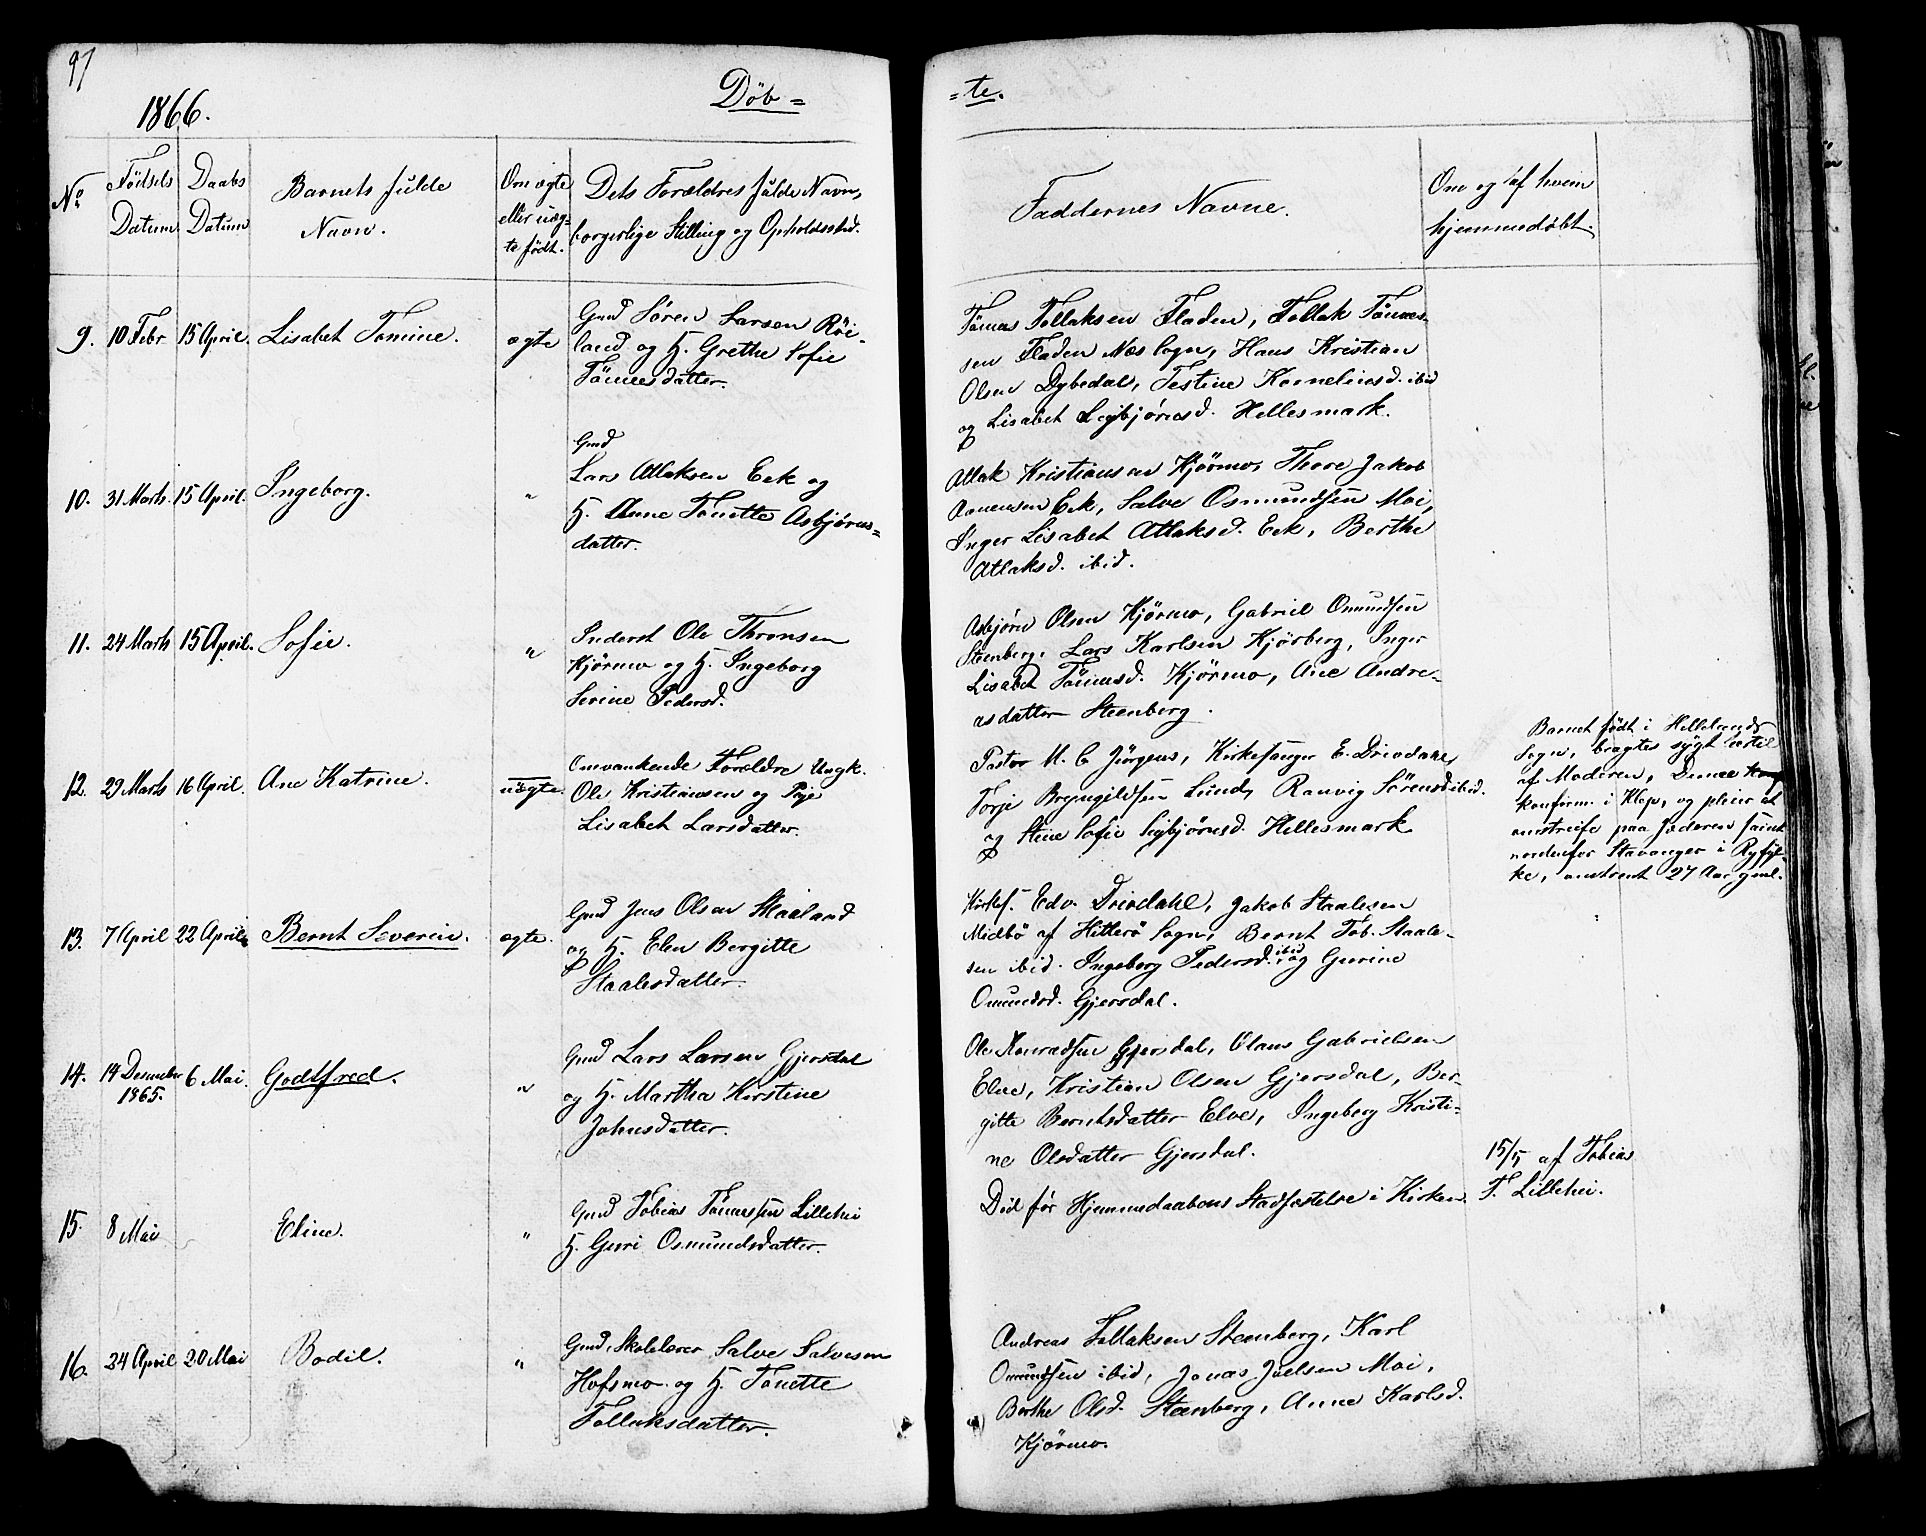 97
1866.
Döb=
=te.
No
Födsels
Datum
Daabs
Datum
Barnets fulde
Navn.
Om ægte
eller uæg-
te födt.
Dets Forældres fulde Navn,
borgerlige Stilling og Opholdssted.
Faddernes Navne.
Om og af hvem
hjemmedöbt.
9. 10 Febr 15 April. Lisabet Tomine. ægte
Gmd Sören Larsen Röi-
land og H. Grethe Sofie
Tönnesdatter.
Tönnes Tollaksen Fladen, Tollak Tönnes-
sen Fladen Næs Sogn, Hans Kristian
Olsen Dybedal, Testine Korneliusd. ibid
og Lisabet Sigbjörnsd. Hellesmark.
10. 31 Marts. 15 April. Ingeborg. "
Gmd
Lars Atlaksen Eek og
H. Anne Tonette Asbjörns=
datter.
Atlak Kristiansen Kjörmo, Thore Jakob
Aanensen Eek, Salve Osmundsen Moi,
Inger Lisabet Atlaksd. Eek, Berthe
Atlaksd. ibid.
11. 24 Marts 15 April. Sofie. "
Inderst Ole Thronsen
Kjörmo og H. Ingeborg
Serine Pedersd.
Asbjörn Olsen Kjörmo, Gabriel Omundsen
Steenberg, Lars Karlsen Kjörberg, Inger
Lisabet Tönnesd. Kjörmo, Ane Andre-
asdatter Steenberg.
12. 29 Marts 16 April. Ane Katrine. uægte.
Omvankende Forældre Ungk.
Ole Kristiansen og Pige
Lisabet Larsdatter.
Pastor M. C. Jürgens, Kirkesanger E. Drivdahl,
Torje Bryngildsen Lund, Ranvig Sörensd. ibid.
og Stine Sofie Sigbjörnsd. Hellesmark
Barnet födt i Hellelands
Sogn, bragtes sygt hertil
af Moderen, Denne
konfirm. i Klep, og pleier at
omstreife paa Jæderen samt
nordenfor Stavanger i Ryfyl-
ke, omtrent 27 Aar gml.
13. 7 April 22 April Bernt Severin. ægte.
Gmd Jens Olsen Skaaland
og H. Elen Bergitte
Staalesdatter.
Kirkes. Edv. Drivdahl, Jakob Staalesen
Midbö af Hitterö Sogn, Bernt Tob. Staale-
sen ibid. Ingeborg Pedersd. ibid og Gurine
Omundsd. Gjersdal.
14. 14 Desember
1865. 6 Mai. Godtfred. "
Gmd Lars Larsen Gjersdal
og H. Martha Kirstine
Johnsdatter.
Ole Konradsen Gjersdal, Olaus Gabrielsen
Elve, Kristian Olsen Gjersdal, Ber-
gitte Berntsdatter Elve, Ingeborg Kristi-
ne Olsdatter Gjersdal.
15. 8 Mai Eline. "
Gmd Tobias Tönnessen Lillehei
H. Gurri Osmundsdatter.
Död för Hjemmedaabens Stadfæstelse i Kirken.
15/5 af Tobias
T. Lillehei.
16. 24 April 20 Mai Bodil. "
Gmd, Skolelærer Salve Salvesen
Hofsmo og H. Tonette
Tollaksdatter.
Andreas Tollaksen Steenberg, Karl
Omundsen ibid, Jonas Juelsen Moi,
Berthe Olsd. Steenberg, Anne Karlsd.
Kjörmo.